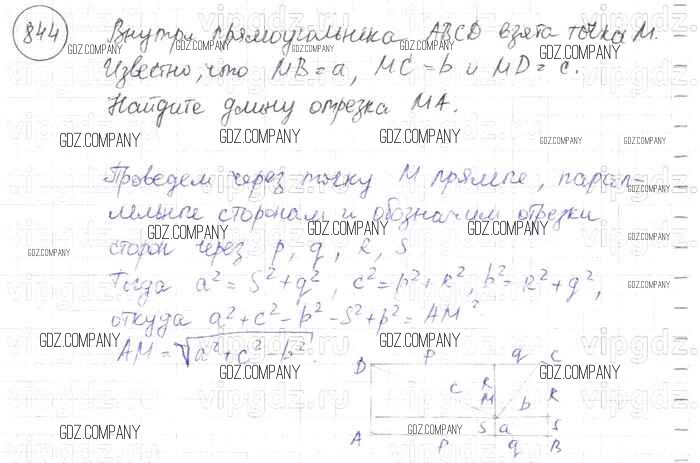 844 Внутри прямоугольника ABCD взята точка M.
Известно, что MB = a, MC = b и MD = c.
Найдите длину отрезка MA.
Проведем через точку M прямые, парал-
лельные сторонам и обозначим отрезки
сторон через p, q, R, S
Тогда a² = S² + q², c² = p² + R², b² = R² + q²,
откуда a² + c² - b² = S² + p² = AM².
AM = √a² + c² - b².
D p q C
c R
M b R
S a S
A p q B
GDZ.COMPANY
vipgdz.ru